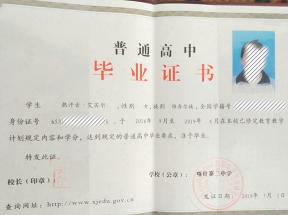 普通高中
毕业证书
学生 ，性别 女，族别 维吾尔族，全国学籍号
身份证号 653 ，于 2016年9月至 2019年6月在本校已修完教育教学
计划规定内容和学分，达到规定的普通高中毕业要求，准予毕业。
特发此证。
校长（印章） 学校（公章） 第二中学
查询网址：http://www.xjedu.gov.cn 发证日期：2019年7月1日